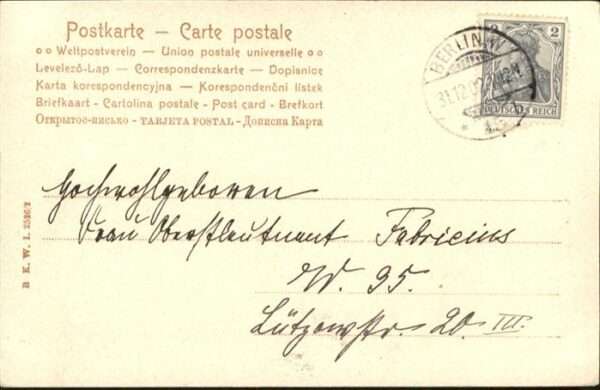 Postkarte — Carte postale
Weltpostverein — Union postale universelle
Levelező-Lap — Correspondenzkarte — Dopisnice
Karta korespondencyjna — Korespondenční lístek
Briefkaart - Cartolina postale - Post card - Brefkort
Открытое-письмо - TARJETA POSTAL - Дописна Карта
2 2
DEUTSCHES REICH
BERLIN W
31.12.0
Hochwohlgeboren
Frau Oberstleutnant Fabricius
W. 35.
Lützowstr. 20 III.
B. K. W. I.